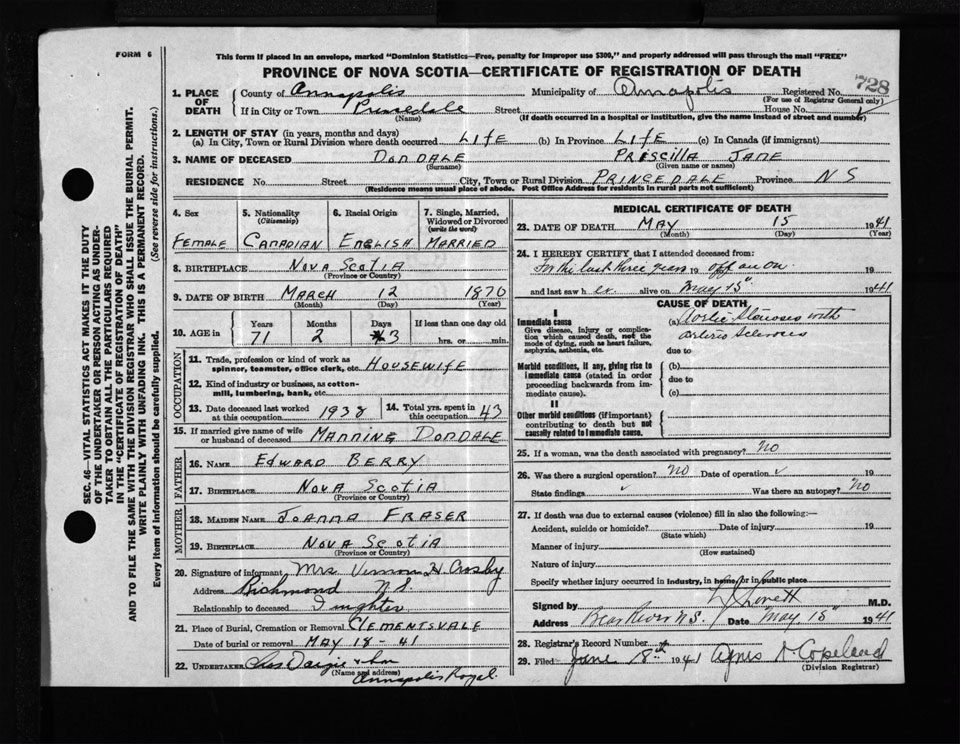 FORM 6
This form if placed in an envelope, marked "Dominion Statistics—Free, penalty for improper use $300," and properly addressed will pass through the mail "FREE"
PROVINCE OF NOVA SCOTIA—CERTIFICATE OF REGISTRATION OF DEATH
728
1. PLACE OF DEATH
County of Annapolis Municipality of Annapolis Registered No.
(For use of Registrar General only)
If in City or Town Princedale Street House No.
(Name) (If death occurred in a hospital or institution, give the name instead of street and number)
2. LENGTH OF STAY (in years, months and days)
(a) In City, Town or Rural Division where death occurred LIFE (b) In Province LIFE (c) In Canada (if immigrant)
3. NAME OF DECEASED DONDALE PRISCILLA JANE
(Surname) (Given name or names)
RESIDENCE No. Street City, Town or Rural Division PRINCEDALE Province NS
(Residence means usual place of abode. Post Office Address for residents in rural parts not sufficient)
4. Sex
FEMALE
5. Nationality
(Citizenship)
CANADIAN
6. Racial Origin
ENGLISH
7. Single, Married, Widowed or Divorced
(write the word)
MARRIED
8. BIRTHPLACE NOVA SCOTIA
(Province or Country)
9. DATE OF BIRTH MARCH 12 1870
(Month) (Day) (Year)
10. AGE in
Years Months Days If less than one day old
71 2 3 hrs. or min.
OCCUPATION
11. Trade, profession or kind of work as
spinner, teamster, office clerk, etc. HOUSEWIFE
12. Kind of industry or business, as cotton-
mill, lumbering, bank, etc.
13. Date deceased last worked
at this occupation 1938
14. Total yrs. spent in
this occupation 43
15. If married give name of wife
or husband of deceased MANNING DONDALE
FATHER
16. Name EDWARD BERRY
17. Birthplace NOVA SCOTIA
(Province or Country)
MOTHER
18. Maiden Name JOANNA FRASER
19. Birthplace NOVA SCOTIA
(Province or Country)
20. Signature of informant Mrs Vernon H Crosby
Address Richmond N.S.
Relationship to deceased Daughter
21. Place of Burial, Cremation or Removal CLEMENTSVALE
Date of burial or removal MAY 18-41
22. UNDERTAKER Chas Dargie & Son
(Name and address)
Annapolis Royal
MEDICAL CERTIFICATE OF DEATH
23. DATE OF DEATH MAY 15 1941
(Month) (Day) (Year)
24. I HEREBY CERTIFY that I attended deceased from:
For the last three years 19 off an on 19
and last saw h er alive on May 15" 1941
CAUSE OF DEATH
I
Immediate cause
Give disease, injury or complication which caused death, not the mode of dying, such as heart failure, asphyxia, asthenia, etc.
(a) Aortic Stenosis with
arterio Sclerosis
due to
Morbid conditions, if any, giving rise to immediate cause (stated in order proceeding backwards from immediate cause).
(b)
due to
(c)
II
Other morbid conditions (if important) contributing to death but not causally related to immediate cause.
25. If a woman, was the death associated with pregnancy? No
26. Was there a surgical operation? No Date of operation 19
State findings Was there an autopsy? No
27. If death was due to external causes (violence) fill in also the following:—
Accident, suicide or homicide? Date of injury 19
(State which)
Manner of injury
(How sustained)
Nature of injury
Specify whether injury occurred in industry, in home, or in public place
Signed by Lovett M.D.
Address Bear River N.S. Date May 15" 1941
28. Registrar's Record Number
29. Filed June 18th 1941 Agnes D Copeland
(Division Registrar)
SEC. 46—VITAL STATISTICS ACT MAKES IT THE DUTY
OF THE UNDERTAKER OR PERSON ACTING AS UNDER-
TAKER TO OBTAIN ALL THE PARTICULARS REQUIRED
IN THE "CERTIFICATE OF REGISTRATION OF DEATH"
AND TO FILE THE SAME WITH THE DIVISION REGISTRAR WHO SHALL ISSUE THE BURIAL PERMIT.
WRITE PLAINLY WITH UNFADING INK. THIS IS A PERMANENT RECORD.
Every item of information should be carefully supplied. (See reverse side for instructions.)